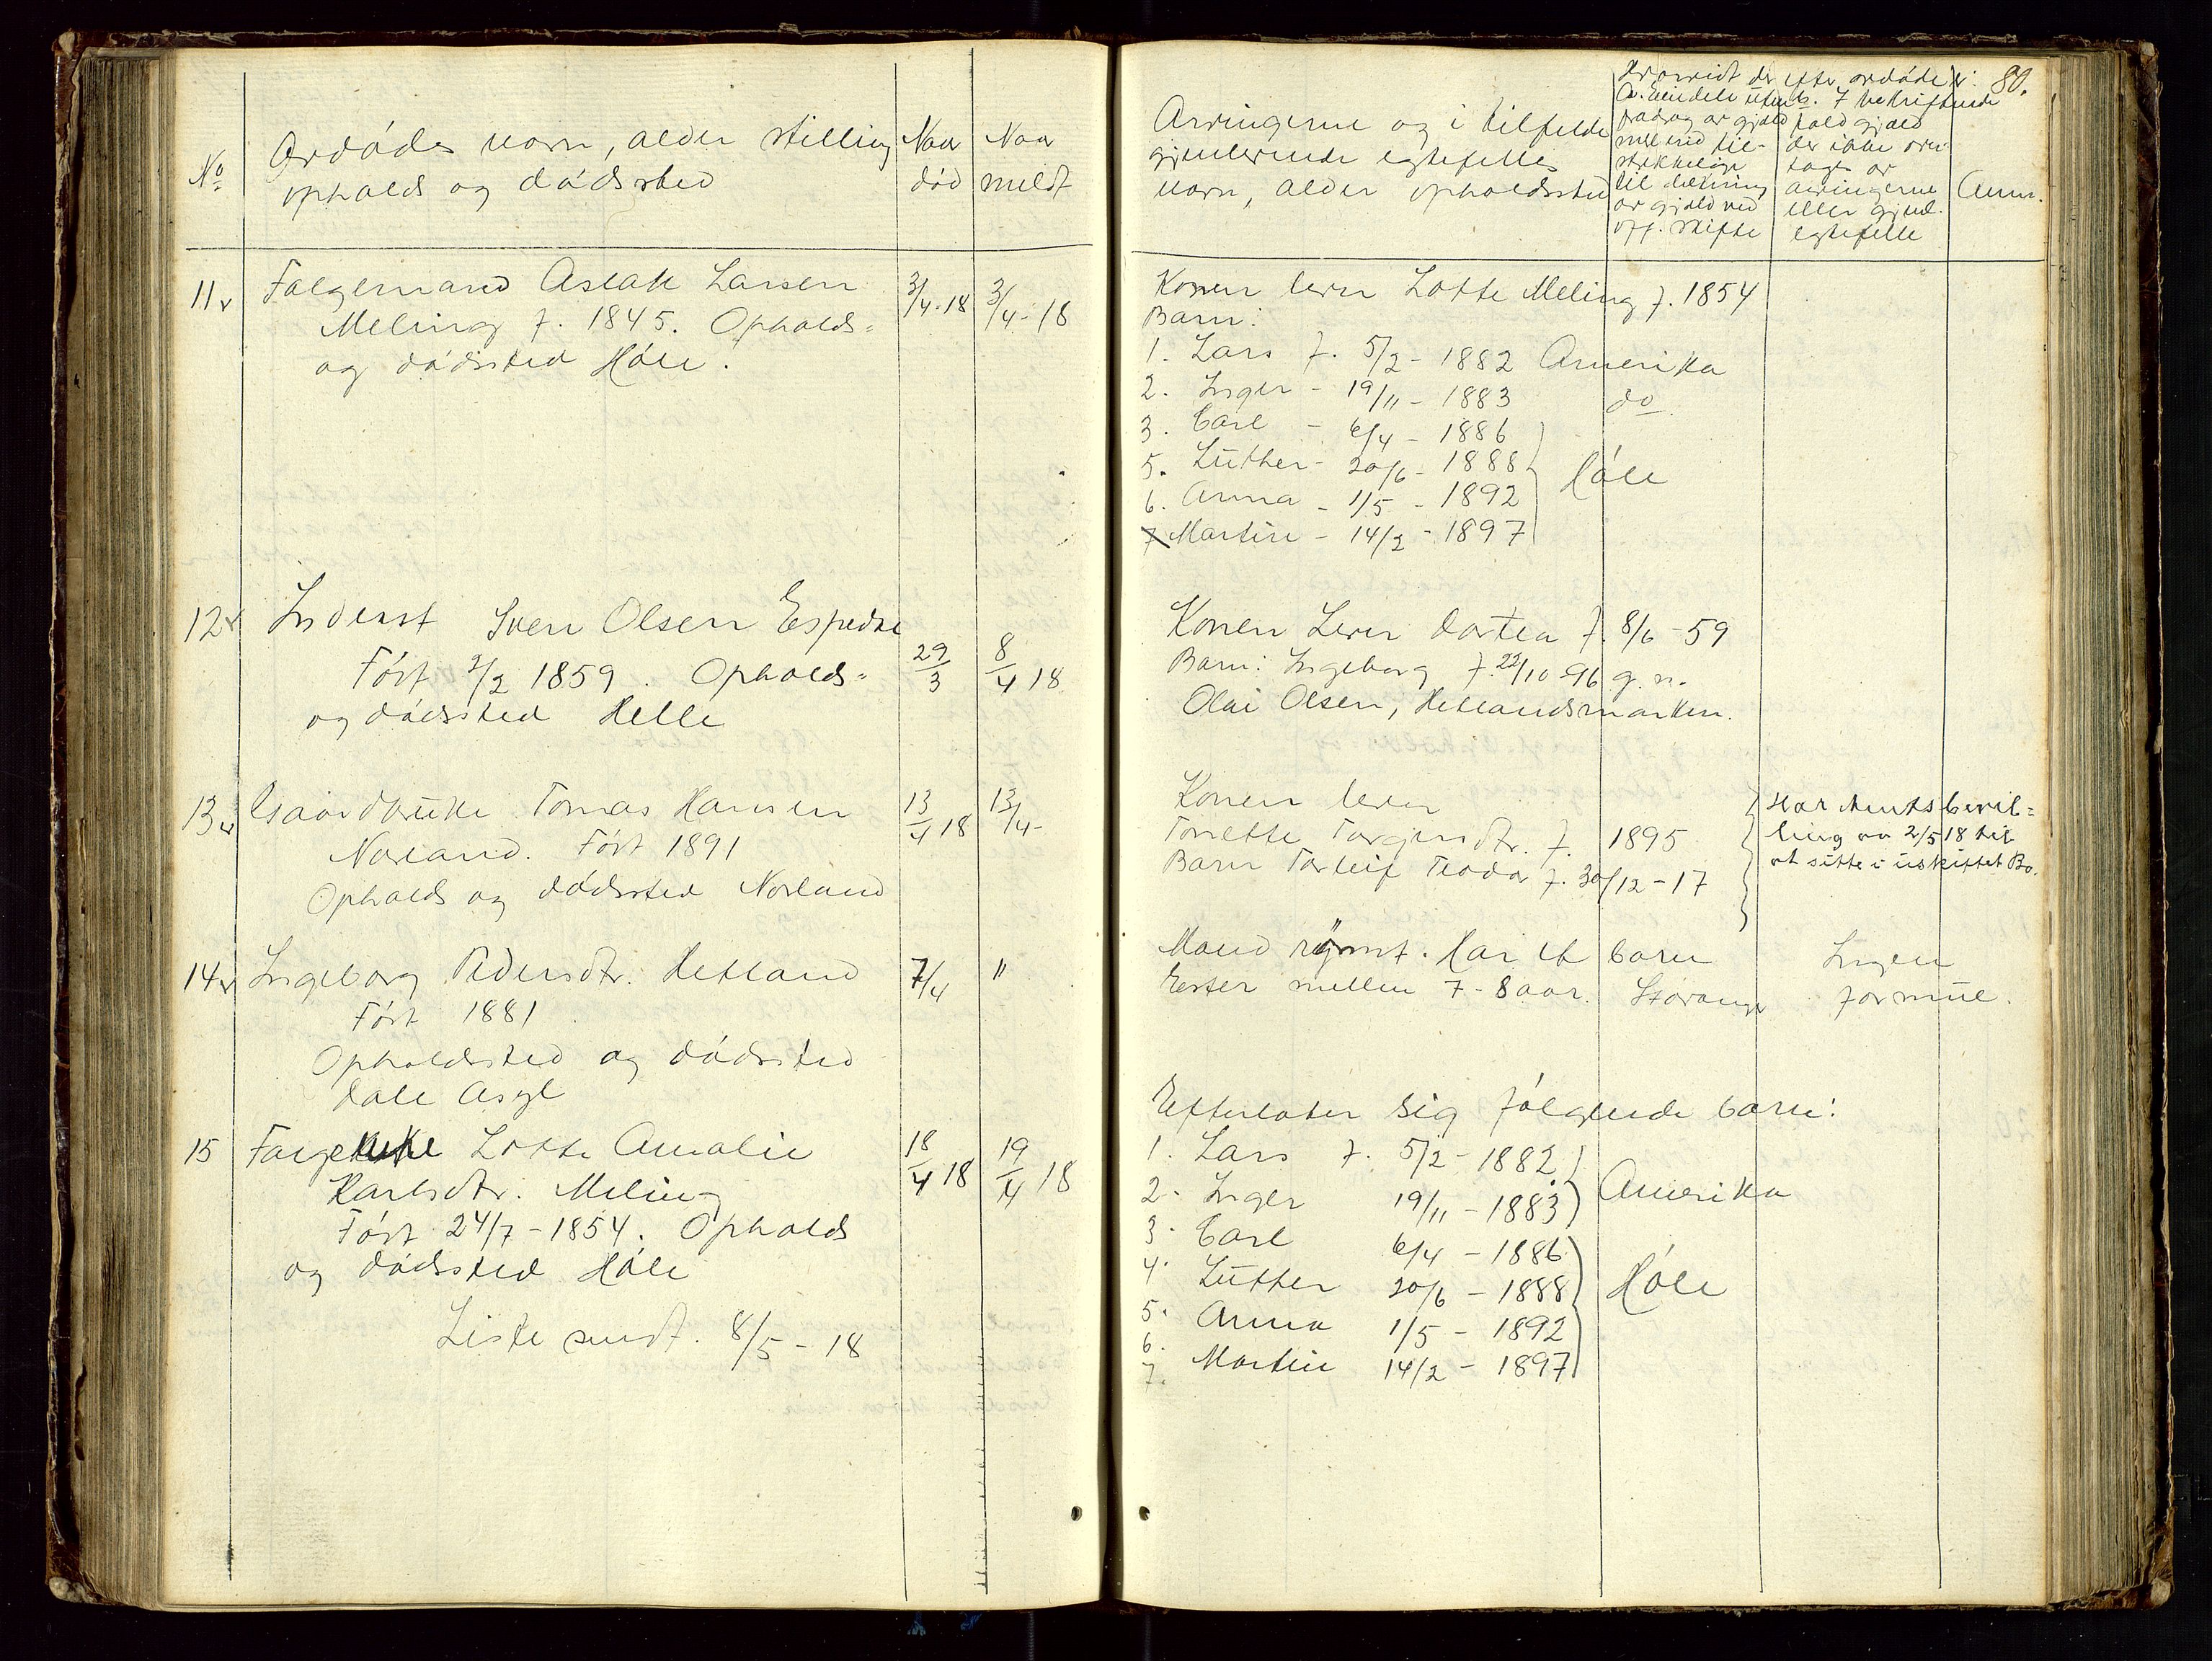 No
Avdødes navn, alder stilling
ophold og dødssted
Naar død
Naar meldt
11
Følgemand Aslak Larsen
Meling f. 1845. Opholds-
og dødssted Høle.
3/4-18
3/4-18
12
Inderst Sven Olsen Espedal
Født 2/2 1859. Opholds-
og dødssted Helle
29/3
8/4 18
13
Gaardbruker Tomas Hansen
Norland. Født 1891
Opholds og dødssted Norland
13/4 18
13/4-
14
Ingeborg Pedersdtr. Hetland
Født 1881
Opholdssted og dødssted
Dale Asyl
7/4
"
15
Lotte Amalie
Karlsdtr. Meling
Født 24/7-1854. Opholds
og dødssted Høle
18/4 18
19/4 18
Liste sendt. 8/5-18
80.
Arvingerne og i tilfelde
gjenlevende egtefelles
navn, alder opholdssted
Hvorvidt der efter avdøde er:
fradrag av gjæld
med tilstrekkelige
til dekning
av gjæld ved
off. skifte
fald gjæld
der ikke over-
tages av
arvingerne
eller gjenl.
egtefelle
Anm.
Konen lever Lotte Meling f. 1854
Barn:
1. Lars f. 5/2-1882 Amerika
2. Inger - 19/11-1883 do
3. Carl - 6/4-1886
5. Luther - 20/6-1888 Høle
6. Anna - 1/5-1892
7 Martin - 14/2-1897
Konen Lever Dortea f. 8/6-59
Barn: Ingeborg f. 22/10-96 g.m.
Olai Olsen, Hetlandsmarken.
Konen lever
Tonette Torgersdtr. f. 1895
Barn Torleif Teodor f. 30/12-17
Har Amtsbevil-
ling av 2/5 18 til
at sitte i uskiftet Bo.
Mand rømt. Har et barn
Ester mellem 7-8 aar. Stavanger
Ingen
formue.
Efterlater sig følgende barn:
1. Lars f. 5/2-1882
2. Inger 19/11-1883 Amerika
3. Carl 6/4-1886
4. Luther 20/6-1888 Høle
5. Anna 1/5-1892
6. Martin 14/2-1897
7.